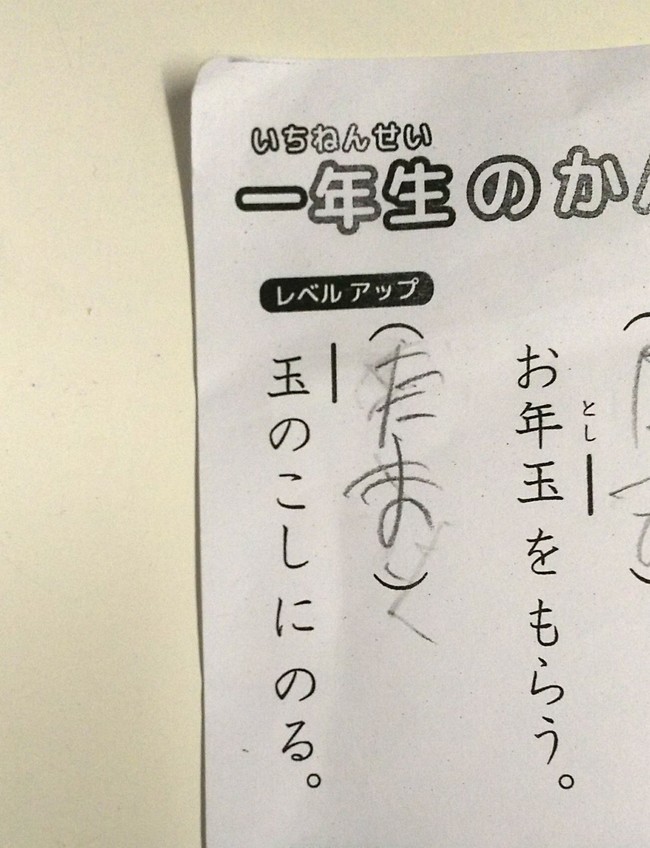 いちねんせい
一年生のか
レベルアップ
とし
お年玉をもらう。
(たま)
玉のこしにのる。